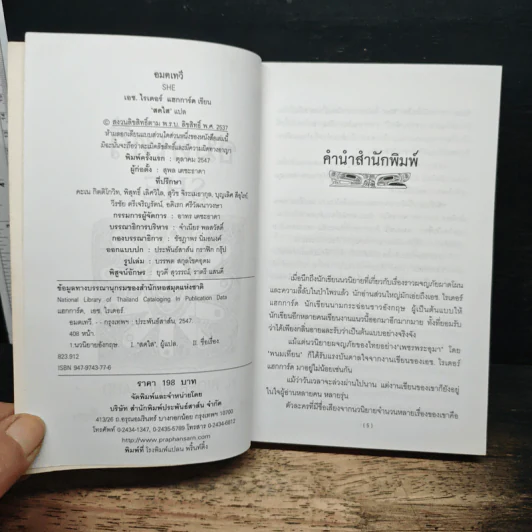 อมตเทวี
SHE
เอช. ไรเดอร์ แฮกการ์ด เขียน
"สดใส" แปล
© สงวนลิขสิทธิ์ตาม พ.ร.บ. ลิขสิทธิ์ พ.ศ. 2537
ห้ามลอกเลียนแบบส่วนใดส่วนหนึ่งของหนังสือเล่มนี้
มิฉะนั้นจะถือว่าละเมิดลิขสิทธิ์และมีความผิดทางอาญา
พิมพ์ครั้งแรก : ตุลาคม 2547
ผู้ก่อตั้ง : สุพล เตชะธาดา
ที่ปรึกษา
คะเน กิตติโกวิท, พิสุทธิ์ เลิศวิไล, สุวิช จิระเมธากุล, บุญเลิศ
วีรชัย ศรีเจริญรัตน์, อดิเรก ศรีวัฒนาวงษา
กรรมการผู้จัดการ : อาทร เตชะธาดา
บรรณาธิการบริหาร : จำเนียร พลสวัสดิ์
กองบรรณาธิการ : ชัชฎาพร นิ่มอนงค์
ออกแบบปก : ประพันธ์สาส์น กราฟิก กรุ๊ป
รูปเล่ม : บรรพต สกุลไชยอุดม
พิสูจน์อักษร : ยุวดี สุวรรณ์, ราตรี แสนดี
ข้อมูลทางบรรณานุกรมของสำนักหอสมุดแห่งชาติ
National Library of Thailand Cataloging in Publication Data
แฮกการ์ด, เอช. ไรเดอร์
อมตเทวี.- - กรุงเทพฯ : ประพันธ์สาส์น, 2547.
408 หน้า.
1.นวนิยายอังกฤษ. I. "สดใส", ผู้แปล. II. ชื่อเรื่อง.
823.912
ISBN 947-9743-77-6
ราคา 198 บาท
จัดพิมพ์และจำหน่ายโดย
บริษัท สำนักพิมพ์ประพันธ์สาส์น จำกัด
413/26 ถ.อรุณอมรินทร์ บางกอกน้อย กรุงเทพฯ 10700
โทรศัพท์ 0-2434-1347, 0-2435-5789 โทรสาร 0-2434-6812
http://www.praphansarn.com
พิมพ์ที่ โรงพิมพ์แปดสอง พริ้นท์ติ้ง
คำนำสำนักพิมพ์
เมื่อนึกถึงนักเขียนนวนิยายที่เกี่ยวกับเรื่องราวผจญภัยผาดโผน
และความลี้ลับในป่าไพรแล้ว นักอ่านส่วนใหญ่มักเอ่ยถึงเอช. ไรเดอร์
แฮกการ์ด นักเขียนนามกระฉ่อนชาวอังกฤษ ผู้เป็นต้นแบบให้
นักเขียนอีกหลายคนเขียนงานแนวนี้ออกมาอีกมากมาย ทั้งที่ยอมรับ
ว่าได้เพียงกลิ่นอายและรับว่าเป็นต้นแบบอย่างจริงจัง
แม้แต่นวนิยายผจญภัยของไทยอย่าง"เพชรพระอุมา" โดย
"พนมเทียน" ก็ได้รับแรงบันดาลใจจากงานเขียนของเอช. ไรเดอร์
แฮกการ์ด มาอยู่ไม่น้อยเช่นกัน
แม้ว่าวันเวลาจะล่วงผ่านไปนาน แต่งานเขียนของเขาก็ยังอยู่
ในใจผู้อ่านหลายคน หลายรุ่น
ตัวละครที่มีชื่อเสียงจากนวนิยายจำนวนหลายเรื่องของเขาคือ
(5)